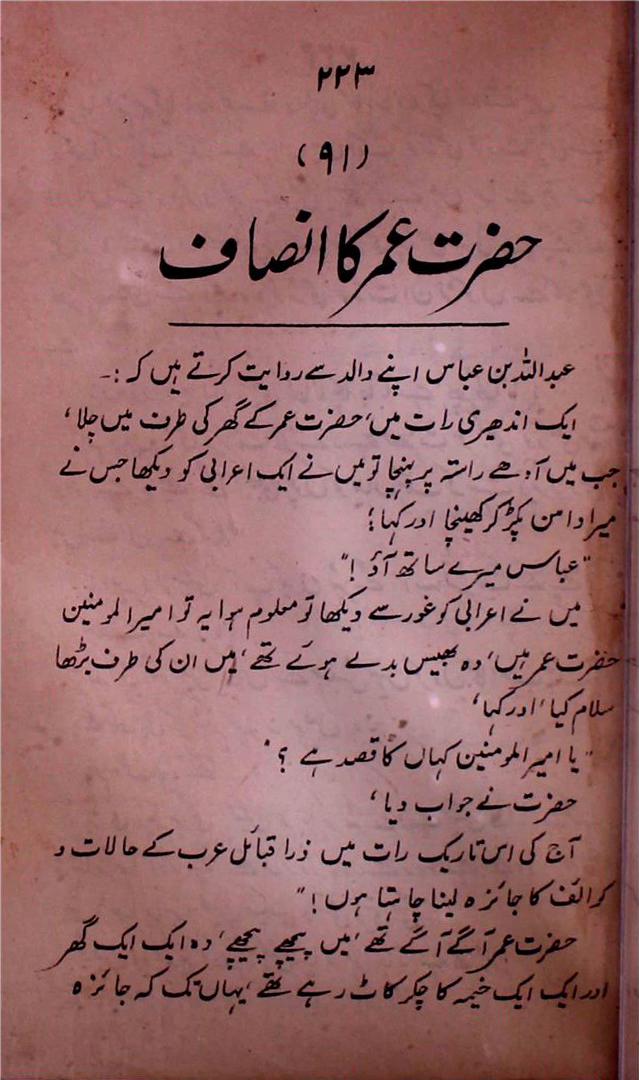 ۲۲۳
(۹۱)
حضرت عمر کا انصاف
عبداللہ بن عباس اپنے والد سے روایت کرتے ہیں کہ :۔
ایک اندھیری رات میں، حضرت عمر کے گھر کی طرف میں چلا،
جب میں آدھے راستہ پر پہنچا تو میں نے ایک اعرابی کو دیکھا جس نے
میرا دامن پکڑ کر کھینچا اور کہا؛
"عباس میرے ساتھ آؤ !"
میں نے اعرابی کو غور سے دیکھا تو معلوم ہوا یہ تو امیرالمومنین
حضرت عمر ہیں، وہ بھیس بدلے ہوئے تھے، میں ان کی طرف بڑھا
سلام کیا، اور کہا،
"یا امیرالمومنین کہاں کا قصد ہے ؟"
حضرت نے جواب دیا،
آج کی اس تاریک رات میں ذرا قبائل عرب کے حالات و
کوائف کا جائزہ لینا چاہتا ہوں !"
حضرت عمر آگے آگے تھے، میں پیچھے پیچھے، وہ ایک ایک گھر
اور ایک ایک خیمہ کا چکر کاٹ رہے تھے، یہاں تک کہ جائزہ